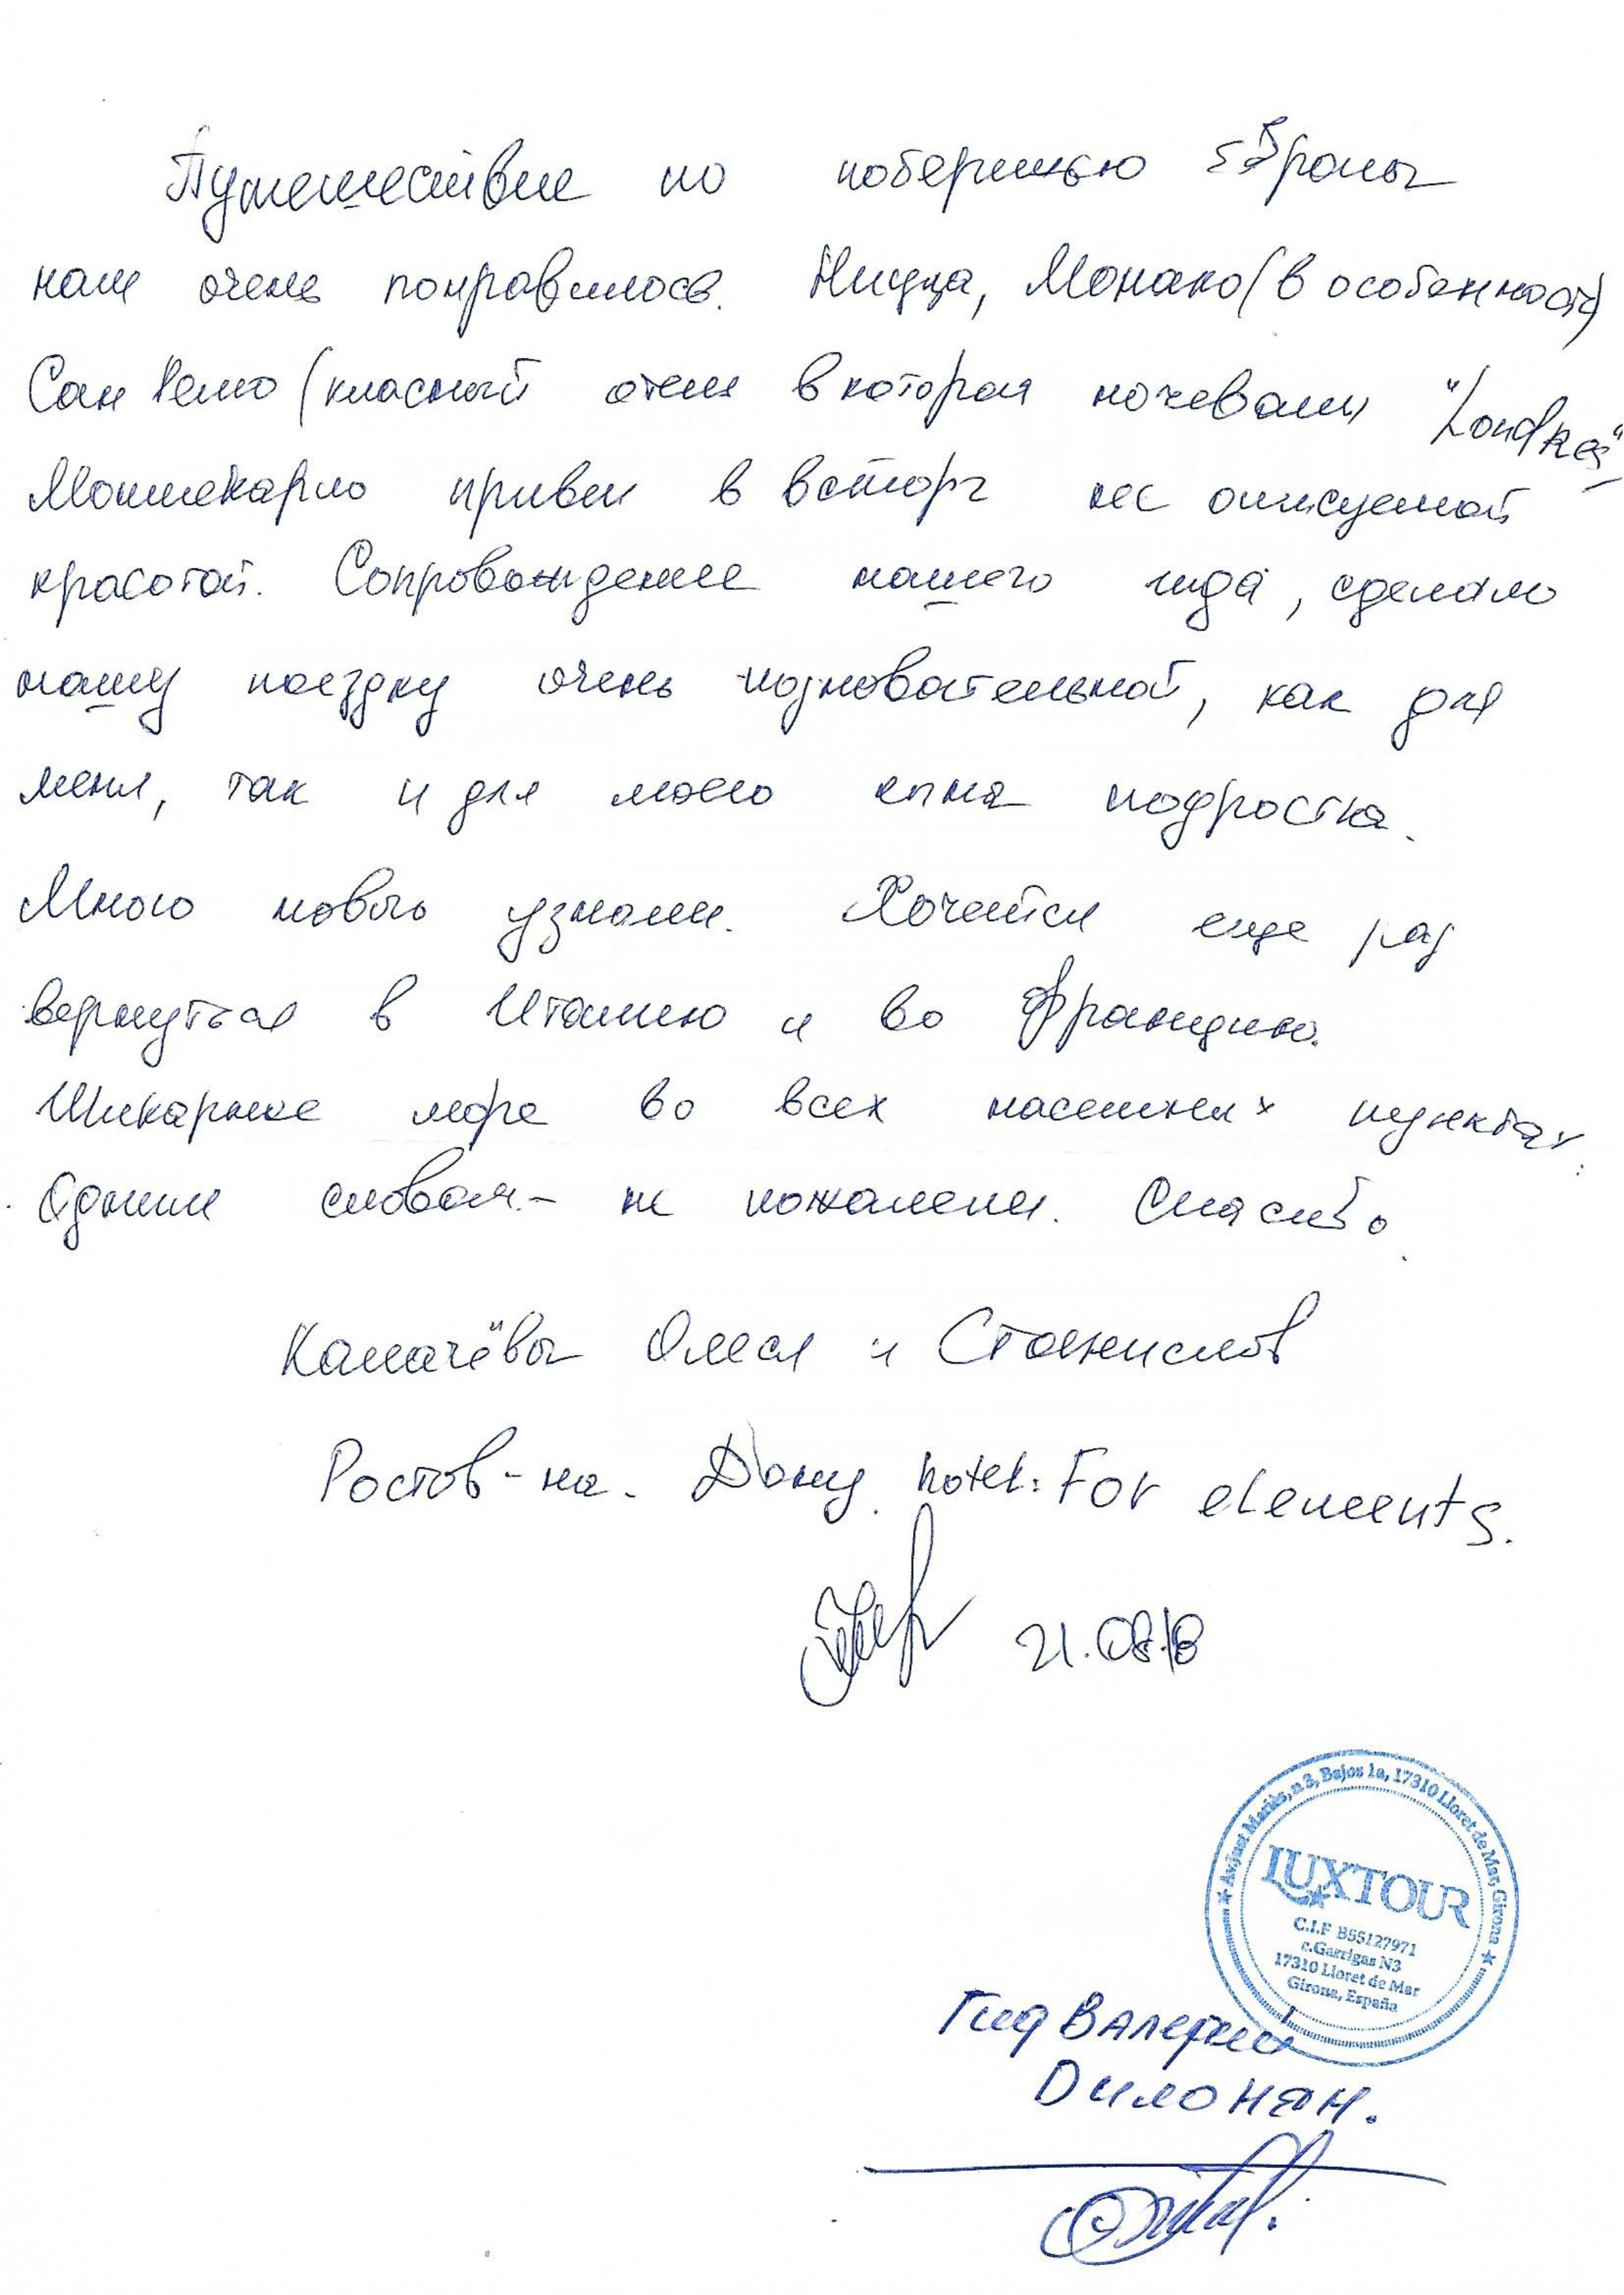 Путешествие по побережью Европы
нам очень понравилось. Ницца, Монако (в особенности)
Сан Ремо (класный отель в котором ночевали "Londres"
Монтекарло привел в восторг не описуемой
красотой. Сопровождение нашего гида, сделало
нашу поездку очень позновательной, как для
меня, так и для моего сына подростка.
Много нового узнали. Хочется еще раз
вернуться в Италию и во Францию.
Шикарное море во всех населенных пунктах.
Одним словом - не пожалели. Спасибо.
Олеся и Станислов
Ростов-на-Дону hotel: For elements.
21.08.18
★ Avjust Mariès, n 3, Bajos 1a, 17310 Lloret de Mar, Girona ★
LUXTOUR
C.I.F B55127971
c.Garrigas N3
17310 Lloret de Mar
Girona, España
Гид Валерий
Дилонян.